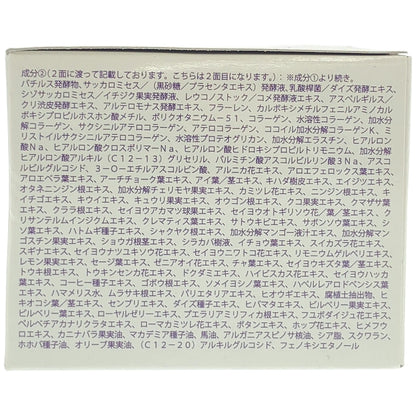 成分②（２面に渡って記載しております。こちらは２面目になります）：※成分①より続き。
バチルス発酵物、サッカロミセス／（黒砂糖／プラセンタエキス）発酵液、乳酸桿菌／ダイズ発酵エキス、
シゾサッカロミセス／イチジク果実発酵液、レウコノストック／コメ発酵液エキス、アスペルギルス／
クリ渋皮発酵エキス、アルテロモナス発酵エキス、フラーレン、カルボキシメチルフェニルアミノカル
ボキシプロピルホスホン酸メチル、ポリクオタニウム－５１、コラーゲン、水溶性コラーゲン、加水
分解コラーゲン、サクシニルアテロコラーゲン、アテロコラーゲン、ココイル加水分解コラーゲンＫ、ミ
リストイルサクシニルアテロコラーゲン、水溶性プロテオグリカン、加水分解エラスチン、ヒアルロン
酸Ｎａ、ヒアルロン酸クロスポリマーＮａ、ヒアルロン酸ヒドロキシプロピルトリモニウム、加水分解ヒ
アルロン酸アルキル（Ｃ１２－１３）グリセリル、パルミチン酸アスコルビルリン酸３Ｎａ、アスコ
ルビルグルコシド、３－Ｏ－エチルアスコルビン酸、アルニカ花エキス、アロエフェロックス葉エキス、
アロエベラ葉エキス、アーチチョーク葉エキス、アイ葉／茎エキス、キハダ樹皮エキス、エイジツエキス、
オタネニンジン根エキス、加水分解チェリモヤ果実エキス、カミツレ花エキス、ニンジン根エキス、
イチゴエキス、キウイエキス、キュウリ果実エキス、オウゴン根エキス、クコ果実エキス、クマザサ葉
エキス、クララ根エキス、セイヨウアカマツ球果エキス、セイヨウオトギリソウ花／葉／茎エキス、ク
リサンテルムインジクムエキス、クレマティス葉エキス、サトウキビエキス、サボンソウ葉エキス、シ
ソ葉エキス、ハトムギ種子エキス、シャクヤク根エキス、加水分解マンゴー液汁エキス、加水分解マン
ゴスチン果実エキス、ショウガ根茎エキス、シラカバ樹液、イチョウ葉エキス、スイカズラ花エキス、
スギナエキス、セイヨウナツユキソウ花エキス、セイヨウニワトコ花エキス、リモニウムゲレリエキス、
レモン果実エキス、セージ葉エキス、ゼニアオイ花エキス、チャ葉エキス、セイヨウキズタ葉／茎エキス、
トウキ根エキス、トウキンセンカ花エキス、ドクダミエキス、ハイビスカス花エキス、セイヨウハッカ
葉エキス、コーヒー種子エキス、ゴボウ根エキス、ソメイヨシノ葉エキス、ハベルレアロドペンシス葉
エキス、ハマメリス水、ムラサキ根エキス、パリエタリアエキス、ヒオウギエキス、腐植土抽出物、ヒ
キオコシ葉／茎エキス、センブリエキス、ダイズ種子エキス、ヒバマタエキス、ビルベリー果実エキス、
ビルベリー葉エキス、ローヤルゼリーエキス、プエラリアミリフィカ根エキス、フユボダイジュ花エキス、
ベルベチアカナリクラタエキス、ローマカミツレ花エキス、ボタンエキス、ホップ花エキス、ヒメフウロ
エキス、カニナバラ果実油、マカデミア種子油、馬油、アルガニアスピノサ核油、シア脂、スクワラン、
ホホバ種子油、オリーブ果実油、（Ｃ１２－２０）アルキルグルコシド、フェノキシエタノール